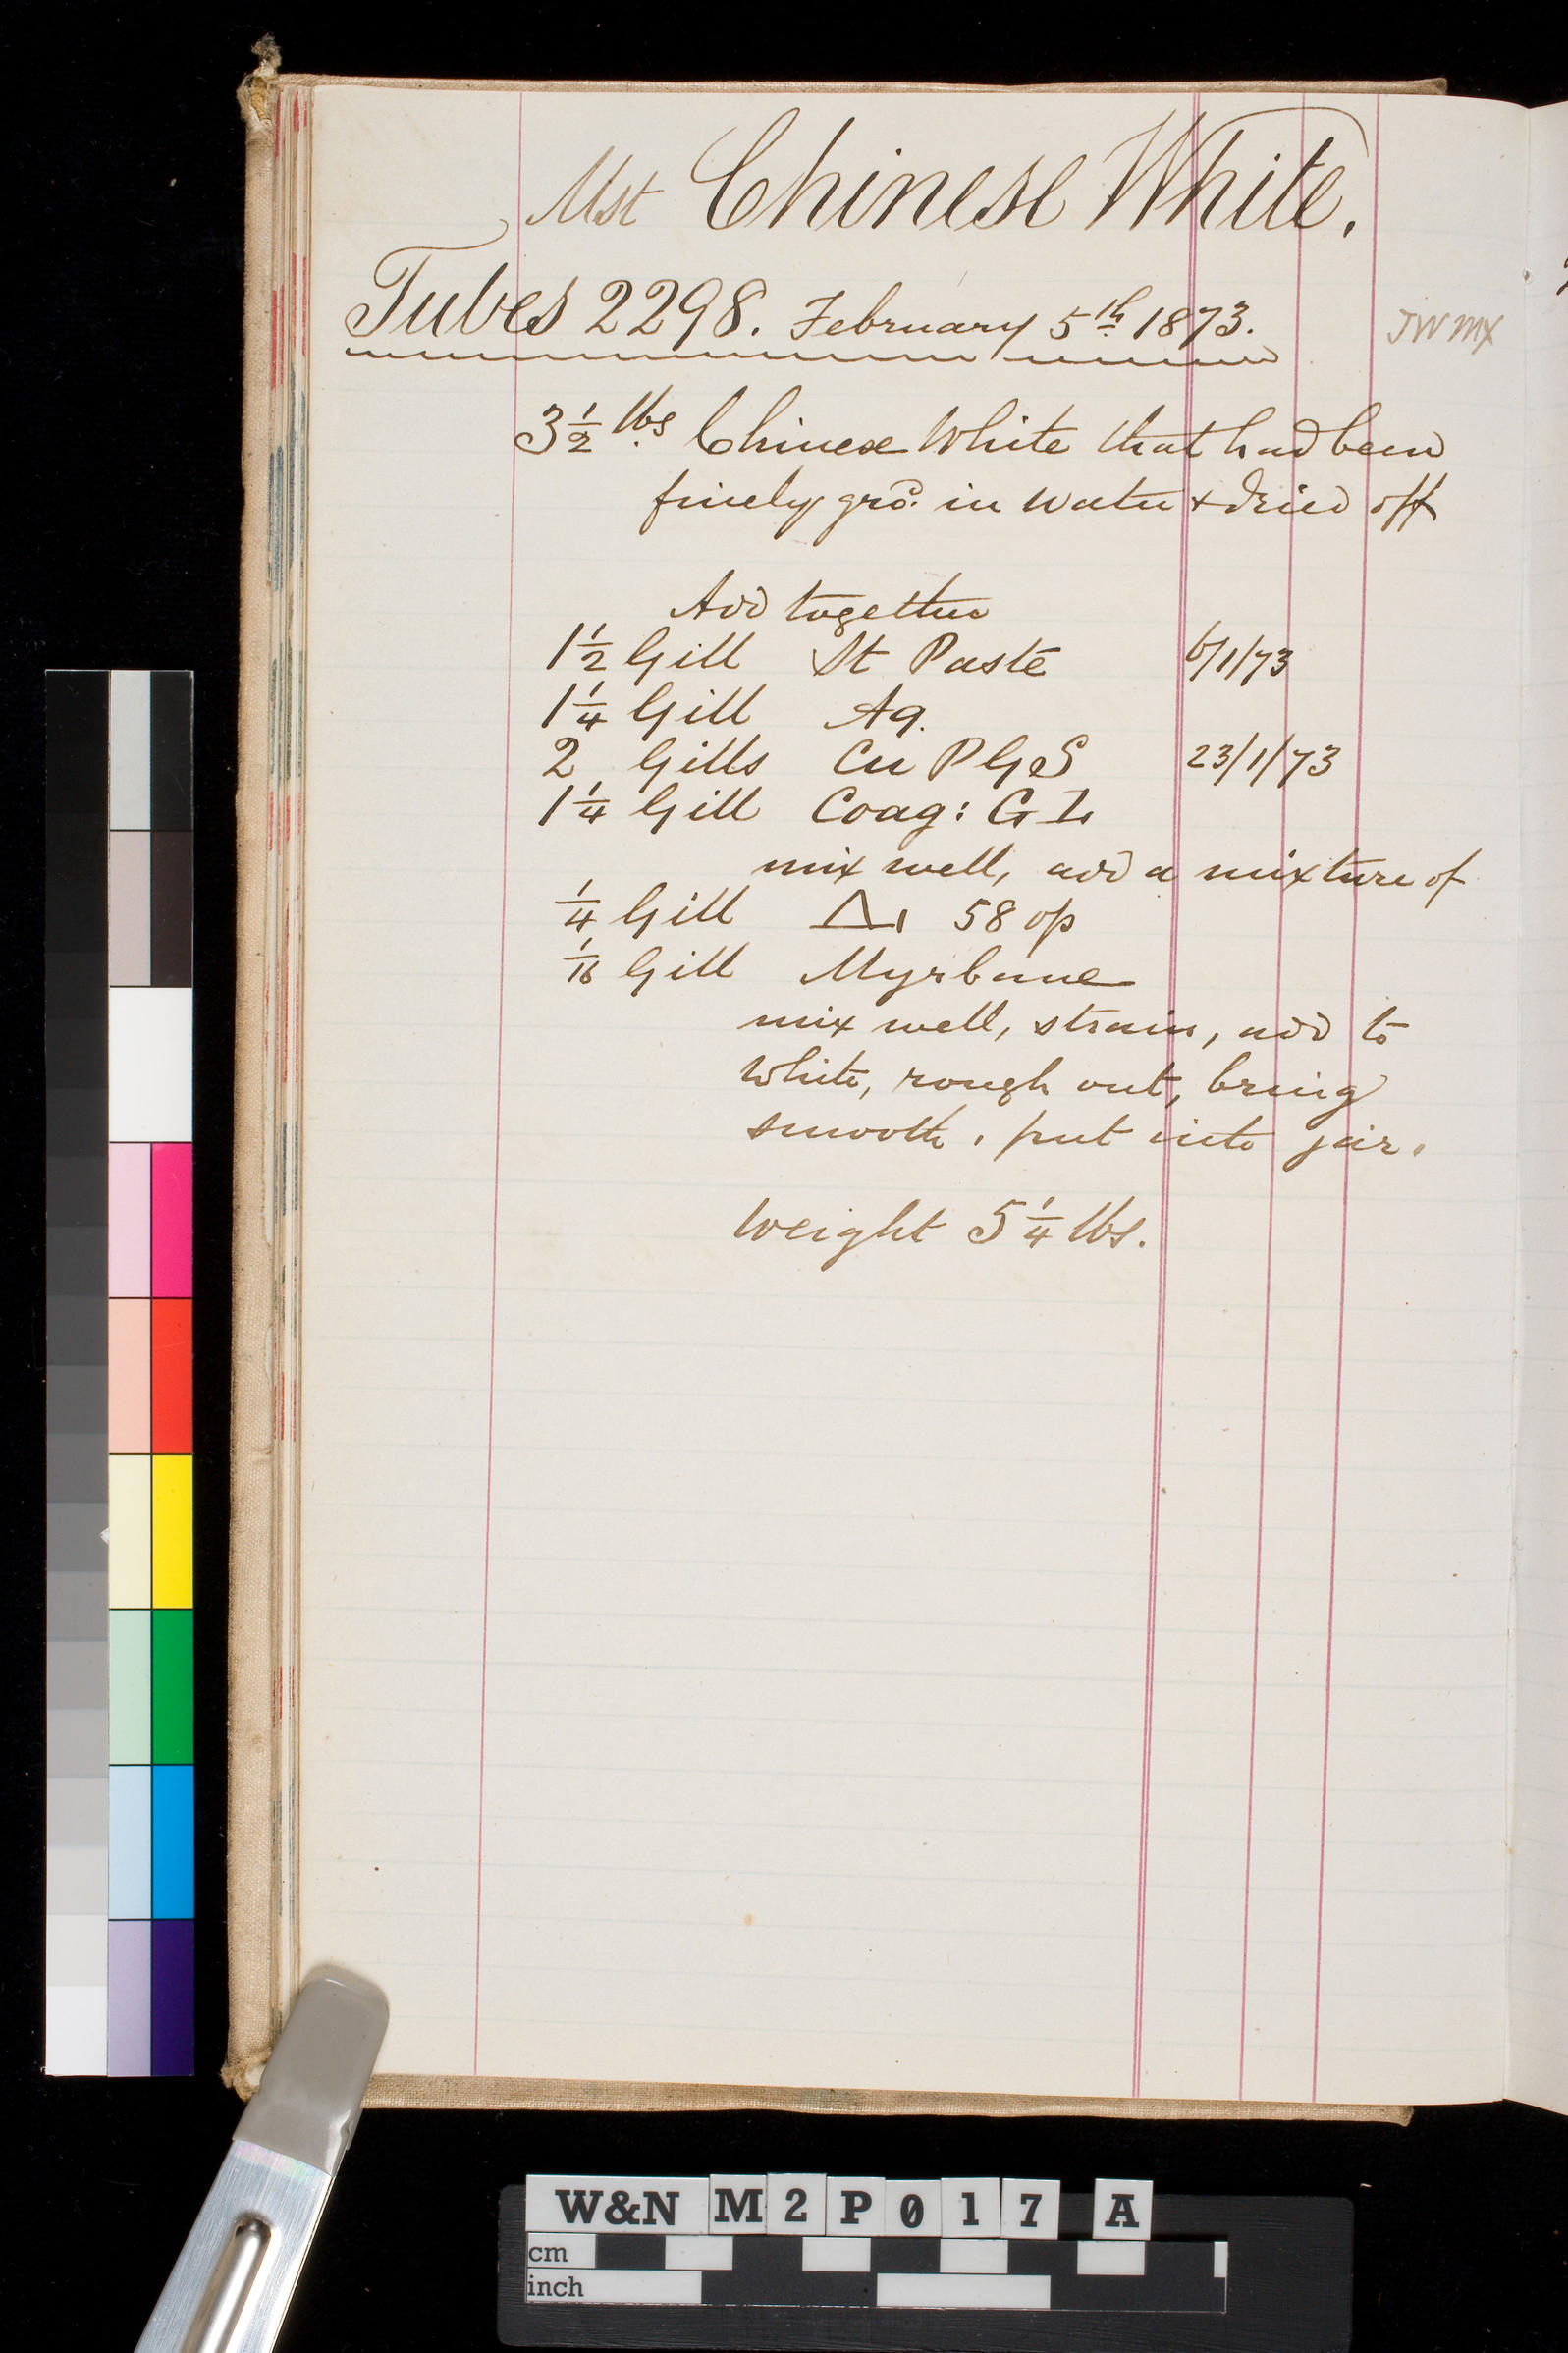 Mst Chinese White.
Tubes 2298. February 5th 1873.
JW MX
3 1/2 lbs Chinese White that had been
finely grd. in water & dried off
Add together
1 1/2 Gill St Paste 6/1/73
1 1/4 Gill Aq.
2 Gills Cu P G S 23/1/73
1 1/4 Gill Coag: G L
mix well, add a mixture of
1/4 Gill 58 op
1/16 Gill Myrbane
mix well, strain, add to
White, rough out, bring
smooth, put into jar.
Weight 5 1/4 lbs.
W&N M2P017 A
cm
inch